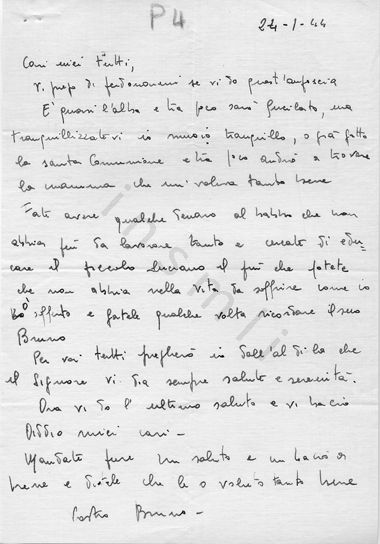 P4
24-1-44
Cari miei tutti,
vi prego di perdonarmi se vi do quest'angoscia
E' quasi l'alba e tra poco sarò fucilato, ma
tranquillizzatevi io muoio tranquillo, o già fatto
la santa Comunione e tra poco andrò a trovare
la mamma che mi voleva tanto bene
Fate avere qualche denaro al babbo che non
abbia più da lavorare tanto e cercate di edu-
care il piccolo Luciano il più che potete
che non abbia nella vita da soffrire come io
ò sofferto e fatele qualche volta ricordare il suo
Bruno
Per voi tutti pregherò io dall'al di là che
il Signore vi dia sempre salute e serenità.
Ora vi do l'ultimo saluto e vi bacio
Addio miei cari -
Mandate pure un saluto e un bacio a
e ditele che le o voluto tanto bene
Bruno -
insmli